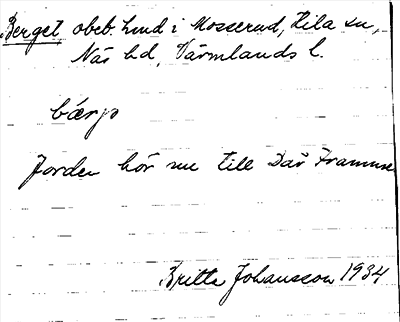 Berget obeb. hmd i Mosserud, Kila sn,
Näs hd, Värmlands l.
bærjə
Jorden hör nu till Där Framme
Britta Johansson 1934